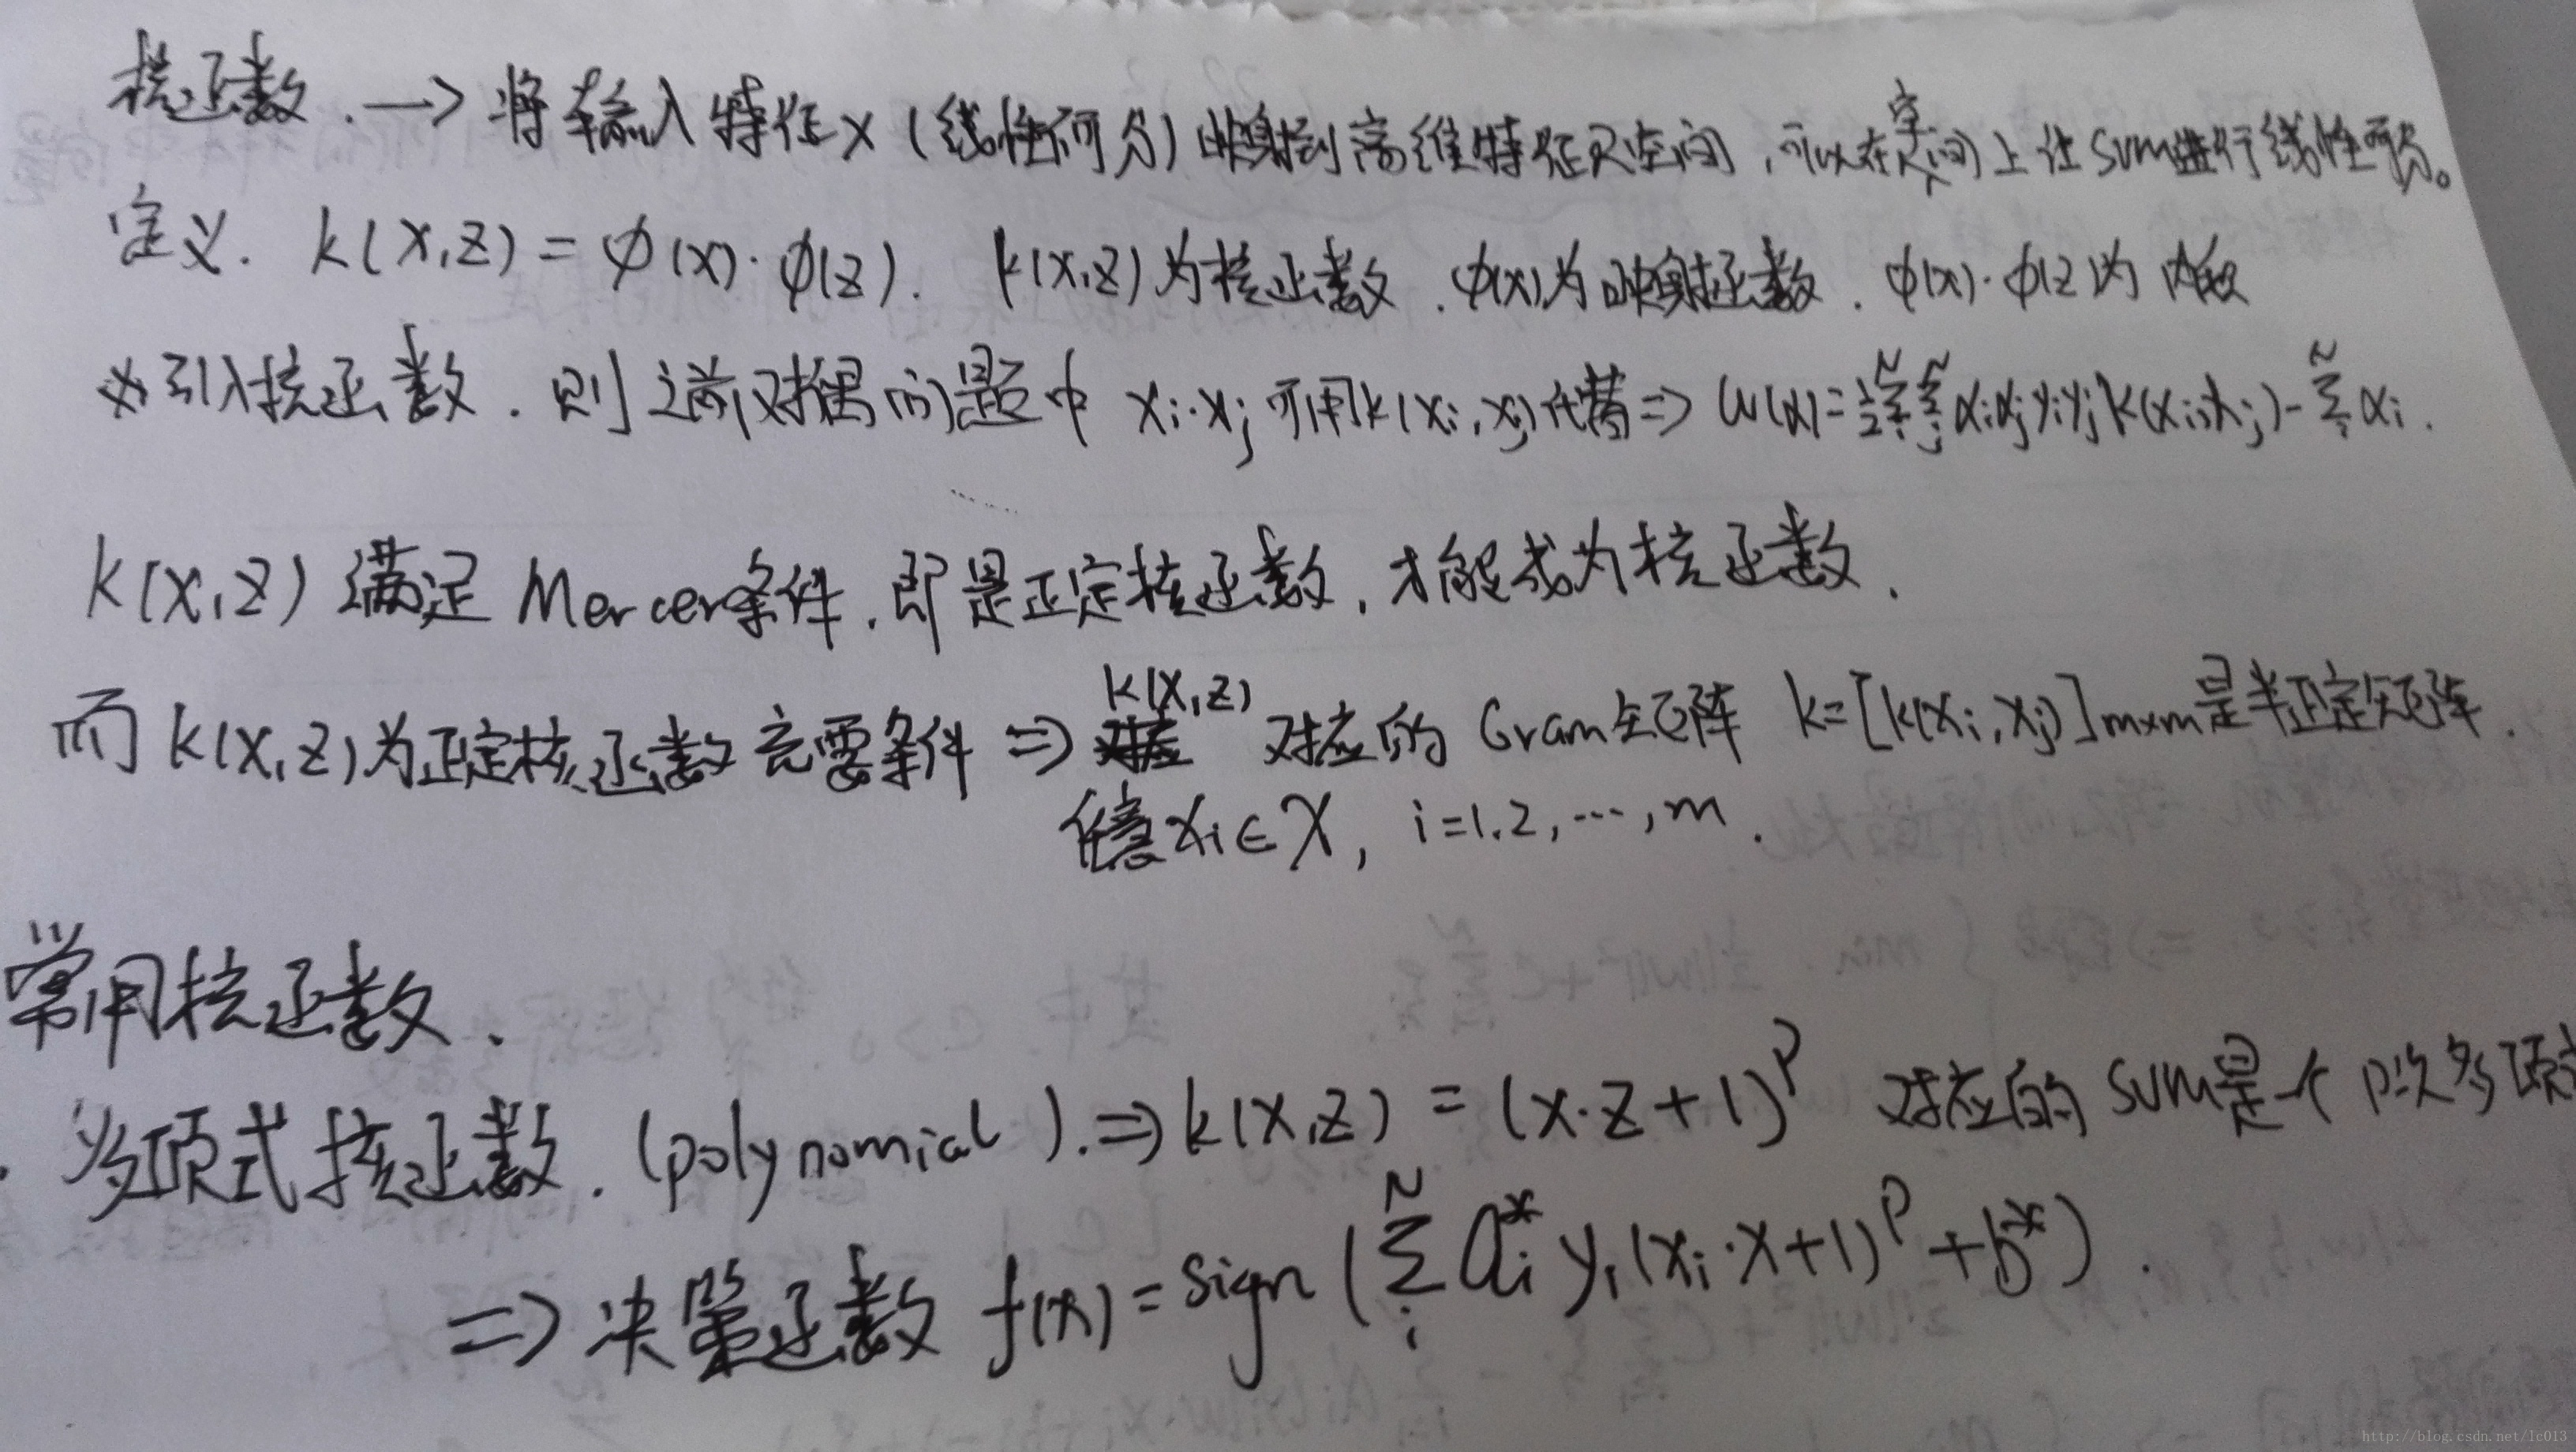 核函数. → 将输入特征x(线性可分)映射到高维特征R空间,可以在R空间上让SVM进行线性可分。
定义. K(x,z) = φ(x)·φ(z). K(x,z)为核函数. φ(x)为映射函数. φ(x)·φ(z)为内积
※引入核函数. 则之前对偶问题中 xi·xj 可用K(xi,xj)代替 ⇒ W(α)=½∑ᵢᴺ∑ⱼᴺαiαjyiyjK(xi,xj)-∑ᵢᴺαi.
K(x,z) 满足 Mercer条件.即是正定核函数,才能成为核函数.
而 K(x,z)为正定核函数充要条件 ⇒ K(x,z) 对应的 Gram矩阵 K=[K(xi,xj)]m×m是半正定矩阵.
任意xi∈X, i=1.2,…,m.
常用核函数.
. 多项式核函数. (polynomial).⇒ K(x,z) = (x·z+1)ᴾ 对应的SVM是一个P次多项
⇒ 决策函数 f(x)=sign(∑ᵢᴺ ai* yi(xi·x+1)ᴾ+b*).
http://blog.csdn.net/lc013